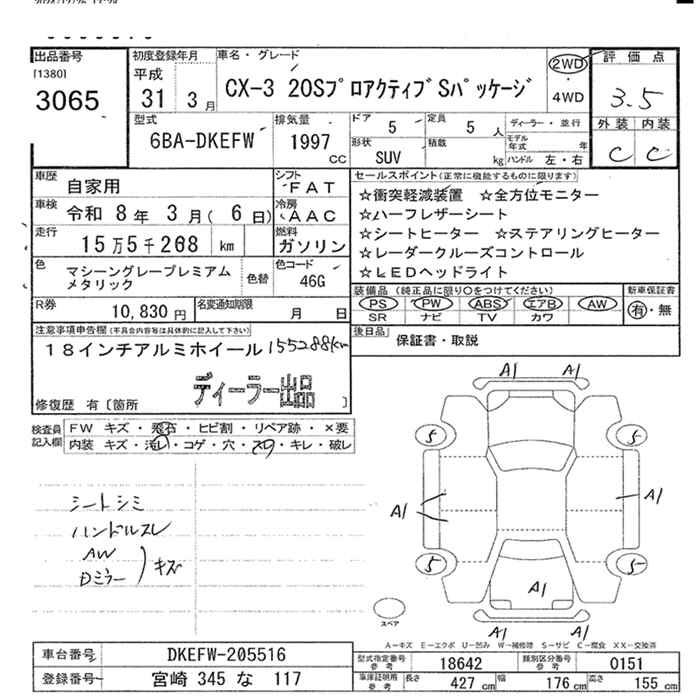 出品番号
[1380]
3065
初度登録年月
平成
31 3月
車名・グレード
CX-3 20Sプロアクティブ Sパッケージ
2WD
4WD
評価点
3.5
外装 内装
C C
型式
6BA-DKEFW
排気量
1997
cc
ドア 5
定員 5 人
形状 SUV
積載 kg
ディーラー・並行
モデル年式 年
ハンドル 左・右
車歴 自家用
シフト FAT
車検 令和 8年 3月( 6日)
冷房 AAC
走行 15万5千268 km
燃料 ガソリン
色 マシーングレープレミアムメタリック
色替
色コード 46G
R券 10,830円
名変通知期限 月 日
セールスポイント(正常に機能するものに限ります)
☆衝突軽減装置 ☆全方位モニター
☆ハーフレザーシート
☆シートヒーター ☆ステアリングヒーター
☆レーダークルーズコントロール
☆LEDヘッドライト
装備品(純正品に限り〇をつけてください)
新車保証書
PS PW ABS エアB AW
有・無
SR ナビ TV カワ
後日品 保証書・取説
注意事項申告欄(不具合内容等は具体的に記入して下さい)
18インチアルミホイール 155288km
ディーラー出品
修復歴 有〔箇所 〕
検査員記入欄
FW キズ・飛石・ヒビ割・リペア跡・×要
内装 キズ・汚レ・コゲ・穴・スレ・キレ・破レ
シートシミ
ハンドルスレ
AW
Dミラー
キズ
A1 A1
5 5
A1 A1
5 5
A1
A1 A1
スペア
A-キズ E-エクボ U-凹み W-補修跡 S-サビ C-腐食 XX-交換済
車台番号 DKEFW-205516
登録番号 宮崎 345 な 117
型式指定番号 参考 18642
類別区分番号 参考 0151
車庫証明用 参考
長さ 427cm
幅 176cm
高さ 155cm